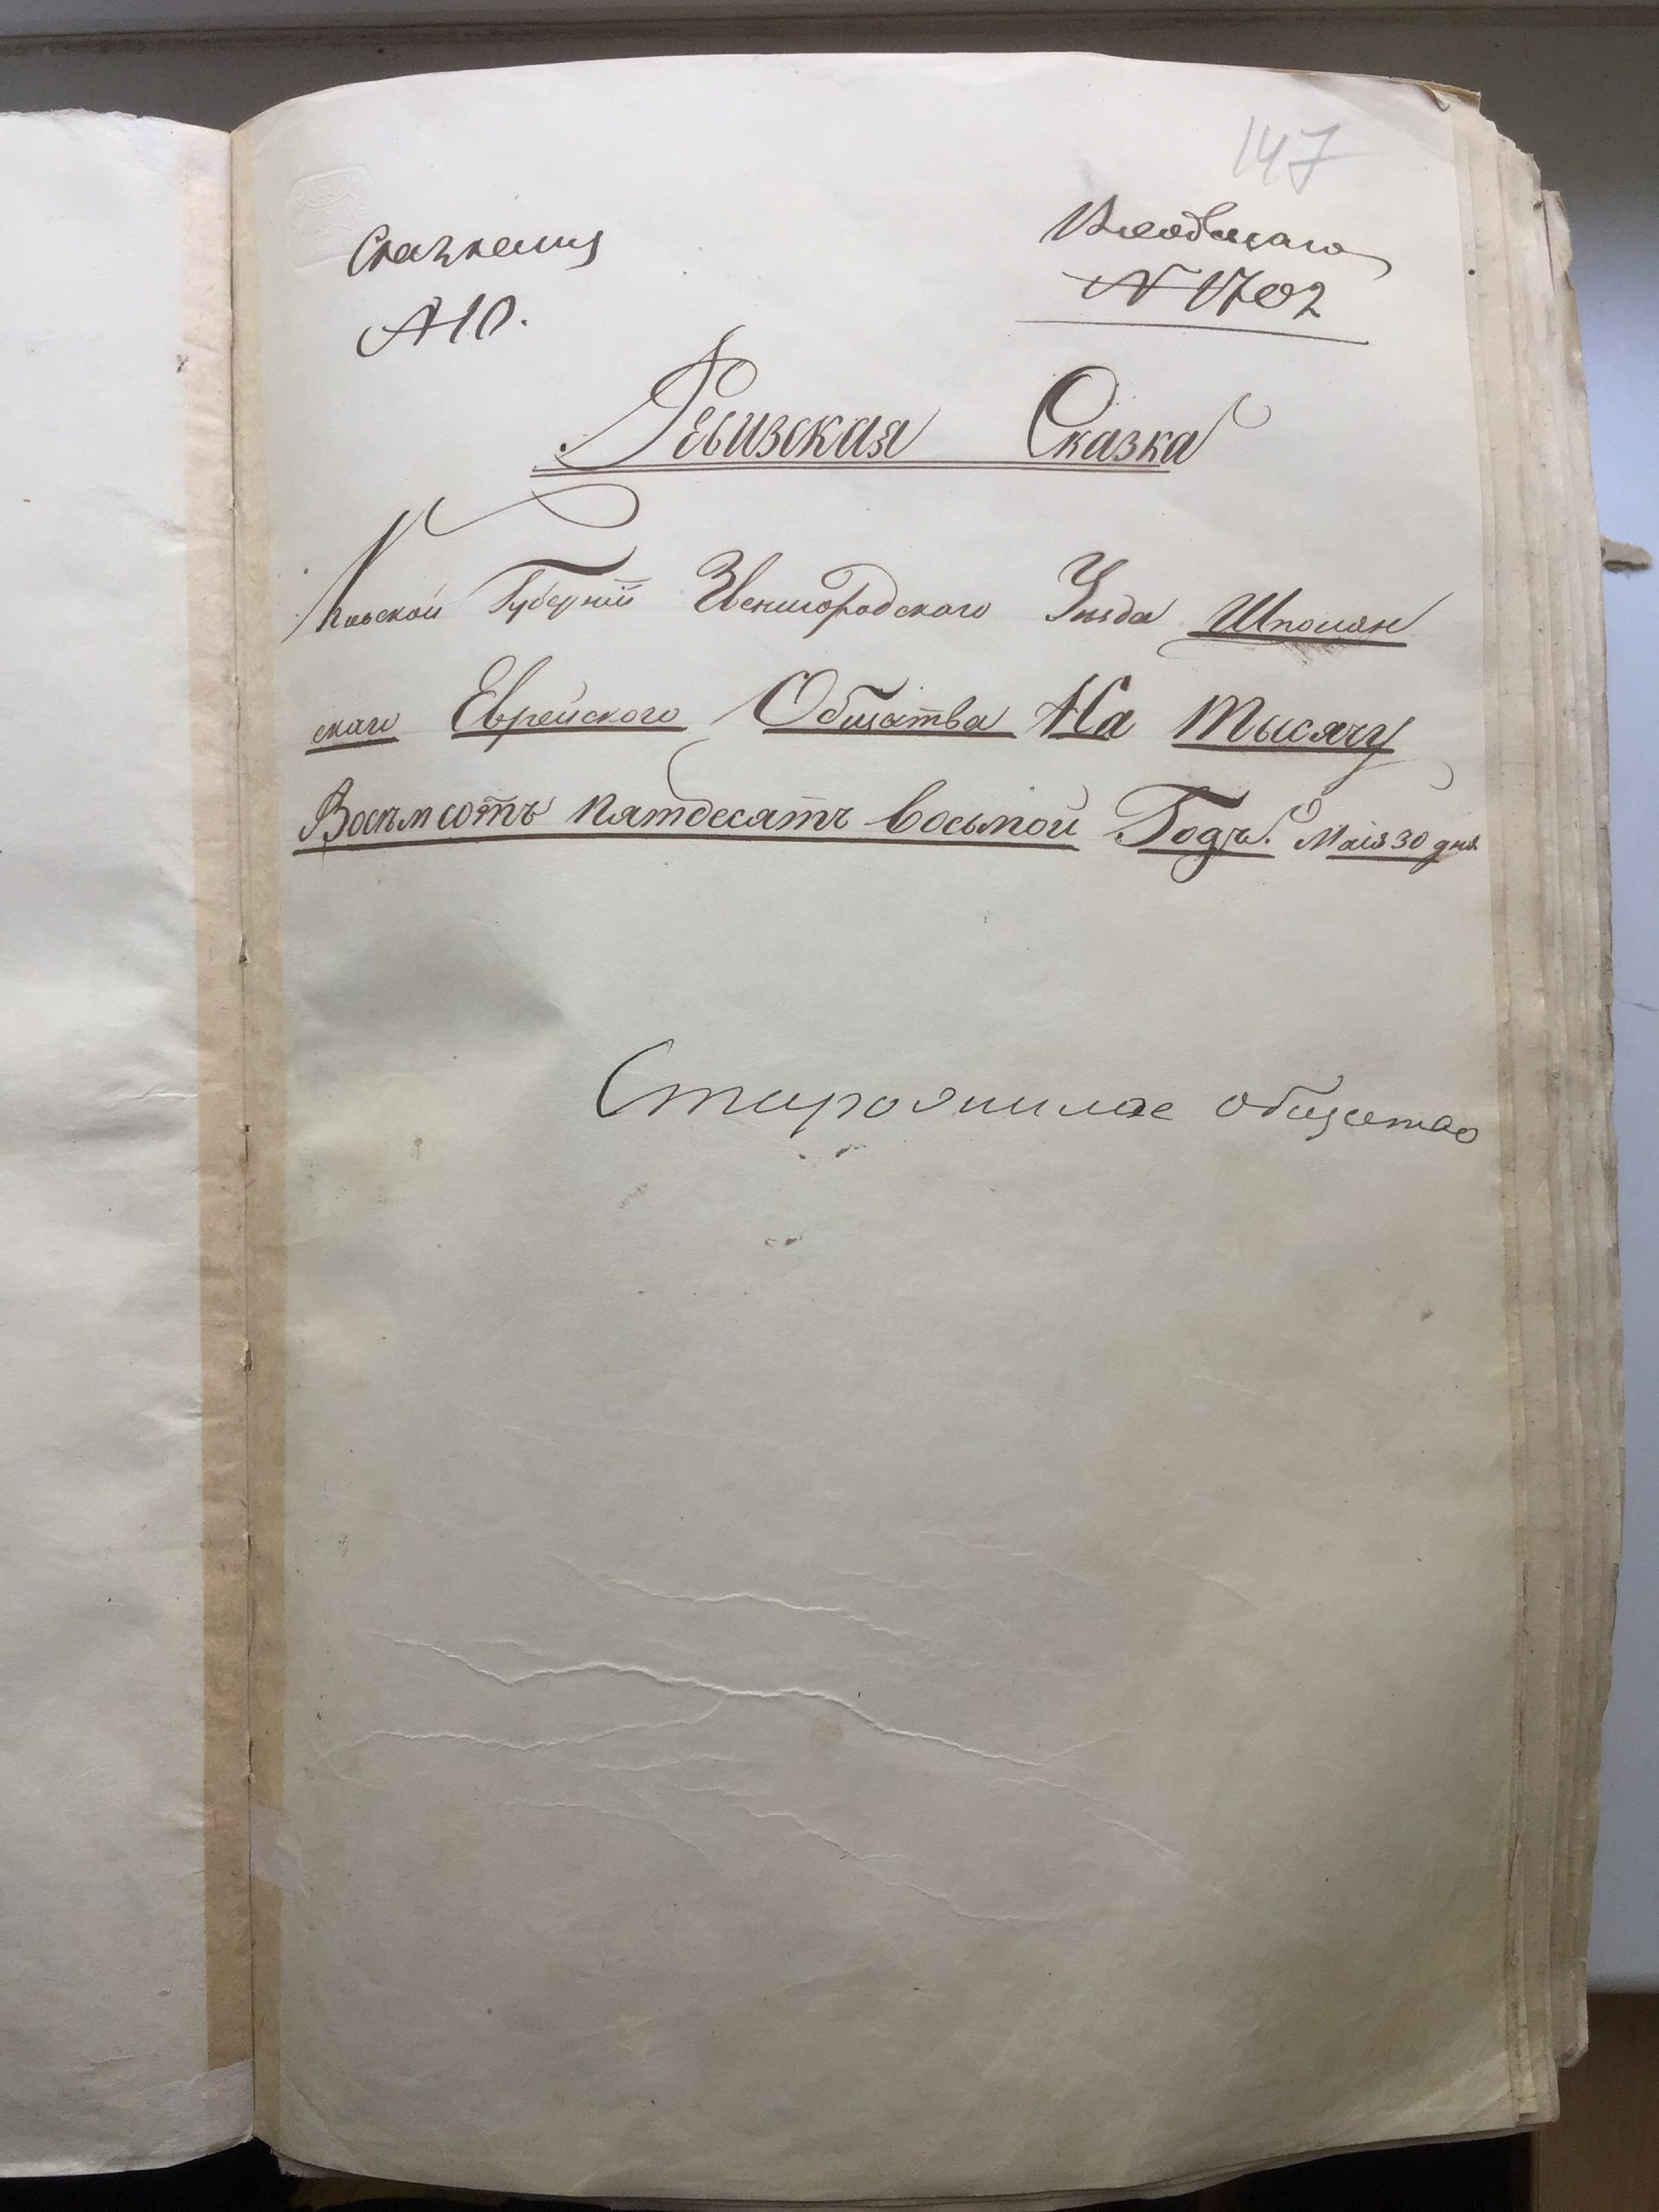 147
Входящаго
№ 1702
№ 10.
Ревизская Сказка
Кіевской Губерніи Звенигородскаго Уѣзда Шполян
скаго Еврейского Общества На тысячу
Восѣмсотъ пятдесятъ восьмой Годъ. Мая 30 дня
Старожилое общество